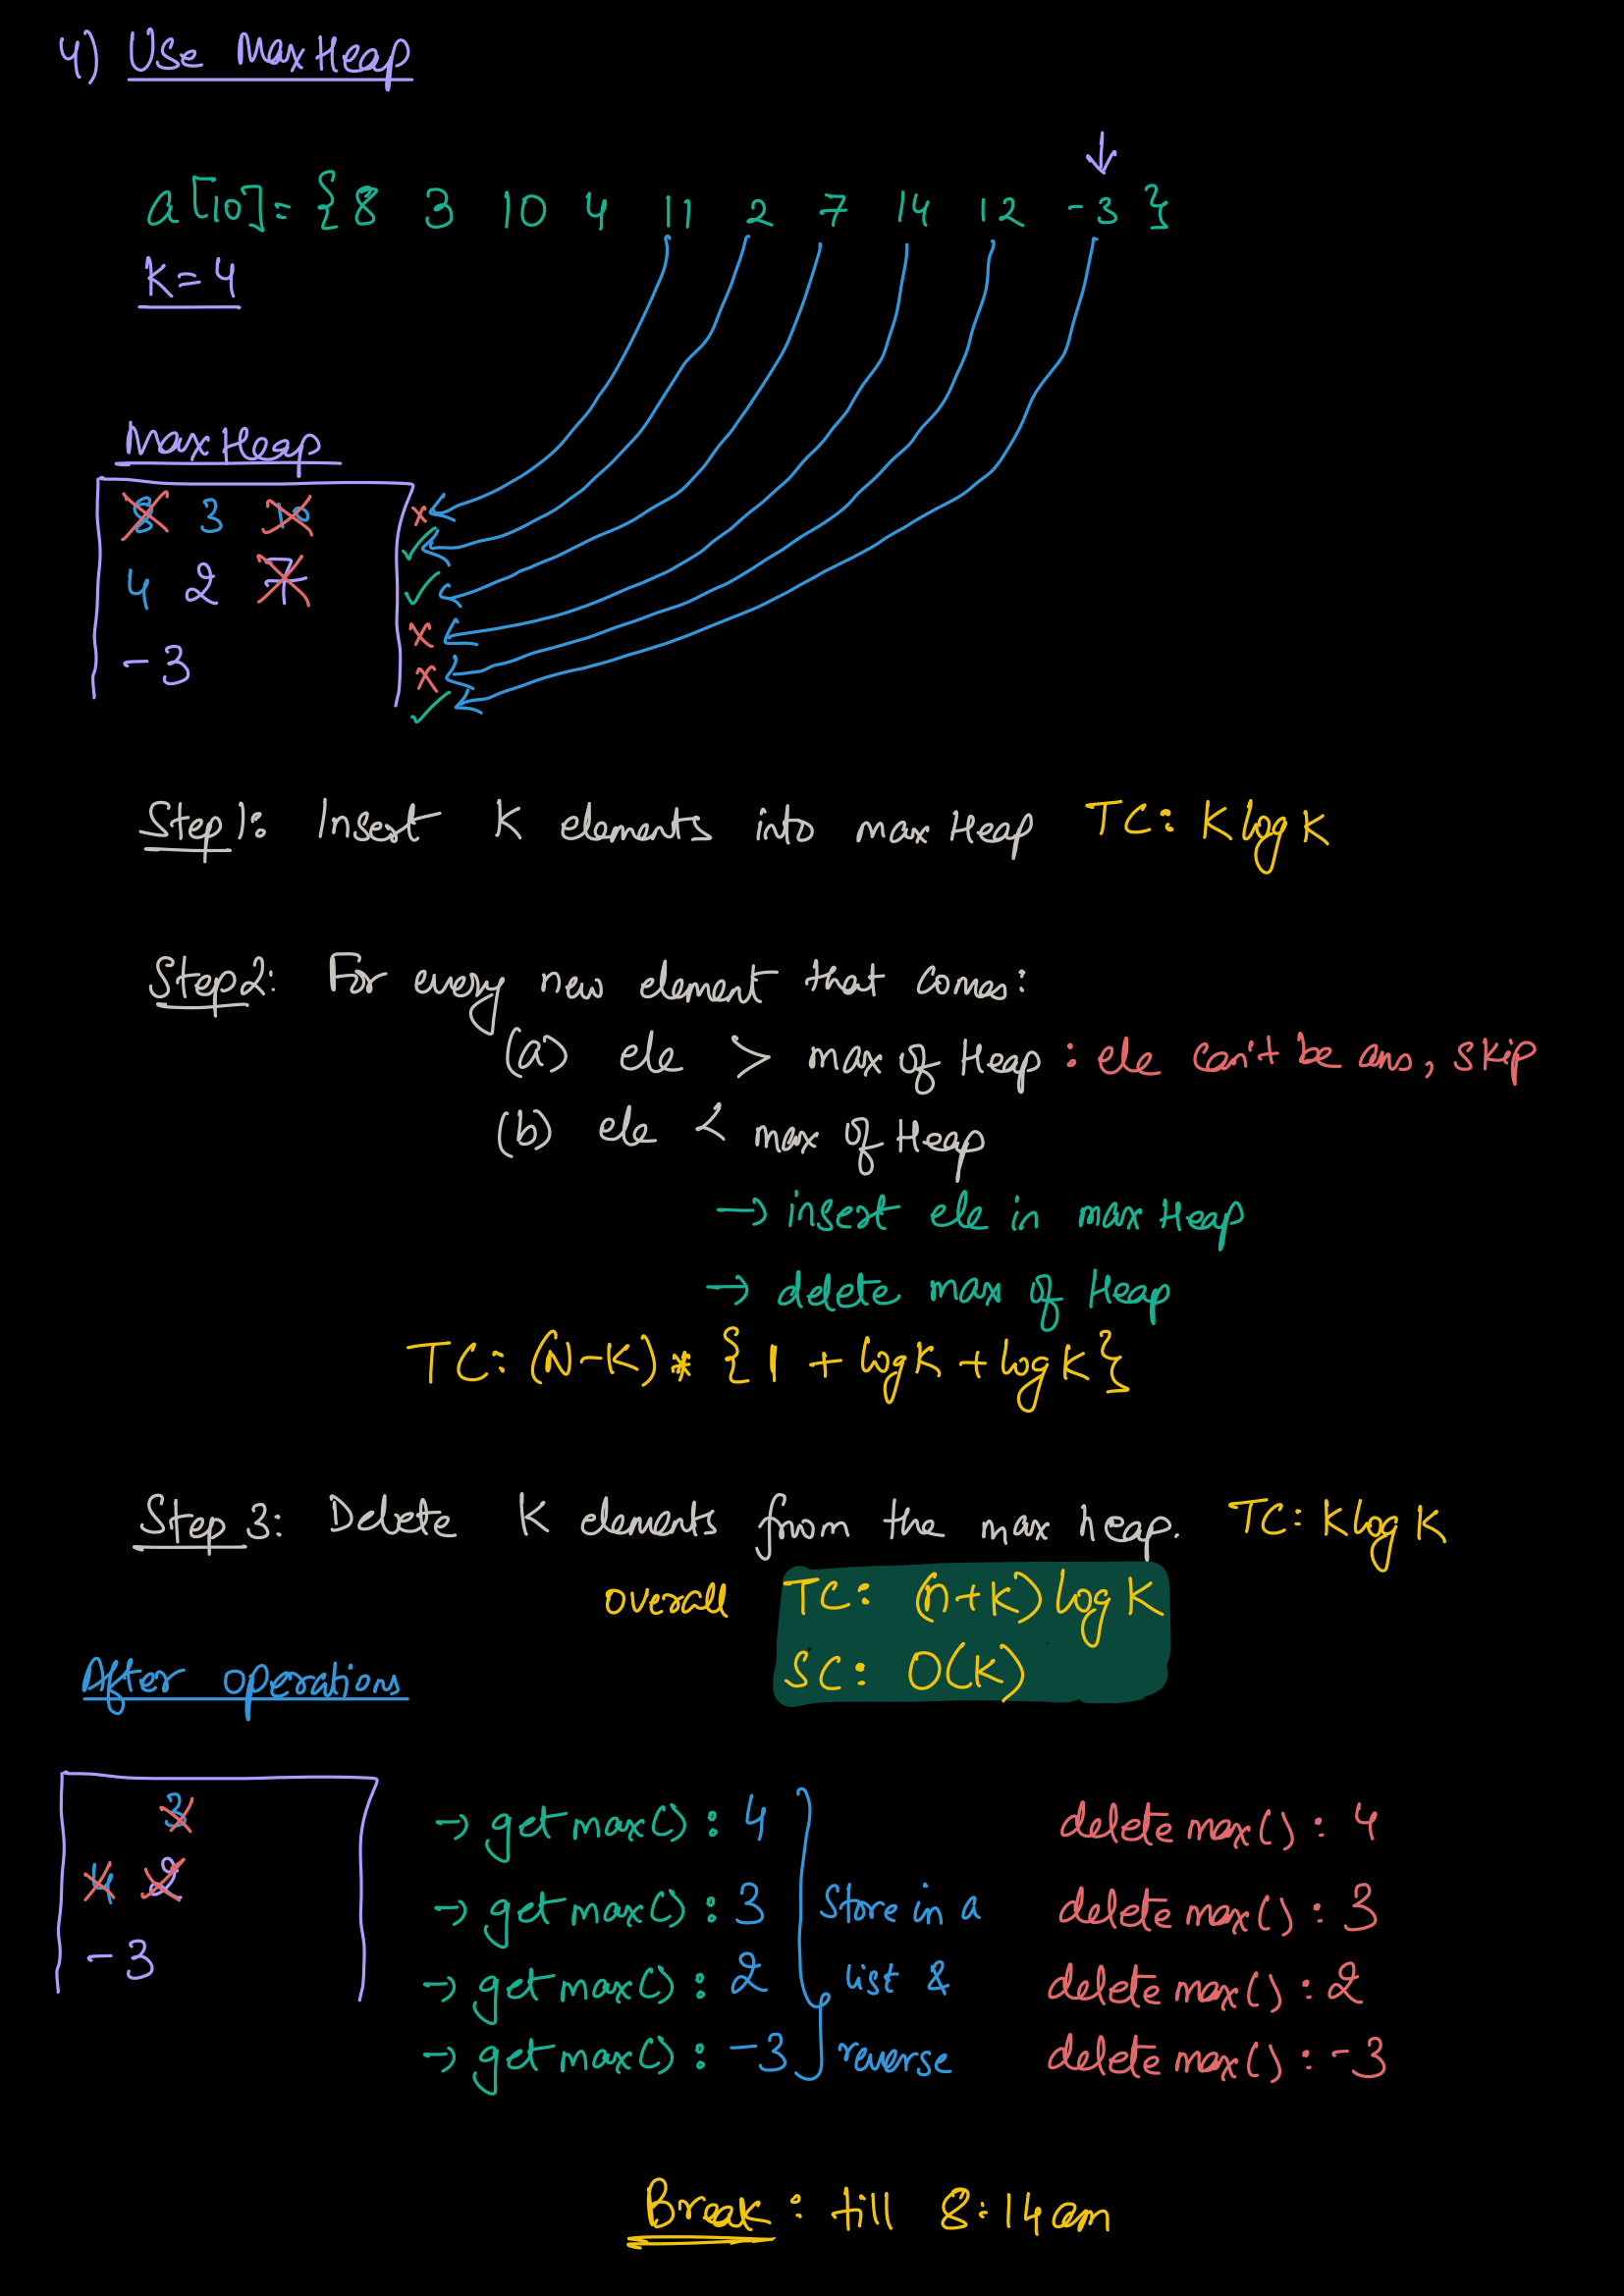 4) Use MaxHeap
a[10]= {8 3 10 4 11 2 7 14 12 -3 }
K=4
Max Heap
8 3 10
4 2 7
-3
Step1: Insert K elements into max Heap TC: K log K
Step2: For every new element that comes:
(a) ele > max of Heap : ele can't be ans, skip
(b) ele < max of Heap
→ insert ele in max Heap
→ delete max of Heap
TC: (N-K) * {1 + log K + log K}
Step 3: Delete K elements from the max heap. TC: K log K
overall TC: (n+K) log K
SC: O(K)
After operations
3
4 2
-3
→ get max() : 4 delete max() : 4
→ get max() : 3 Store in a delete max() : 3
→ get max() : 2 list & delete max() : 2
→ get max() : -3 reverse delete max() : -3
Break : till 8:14am